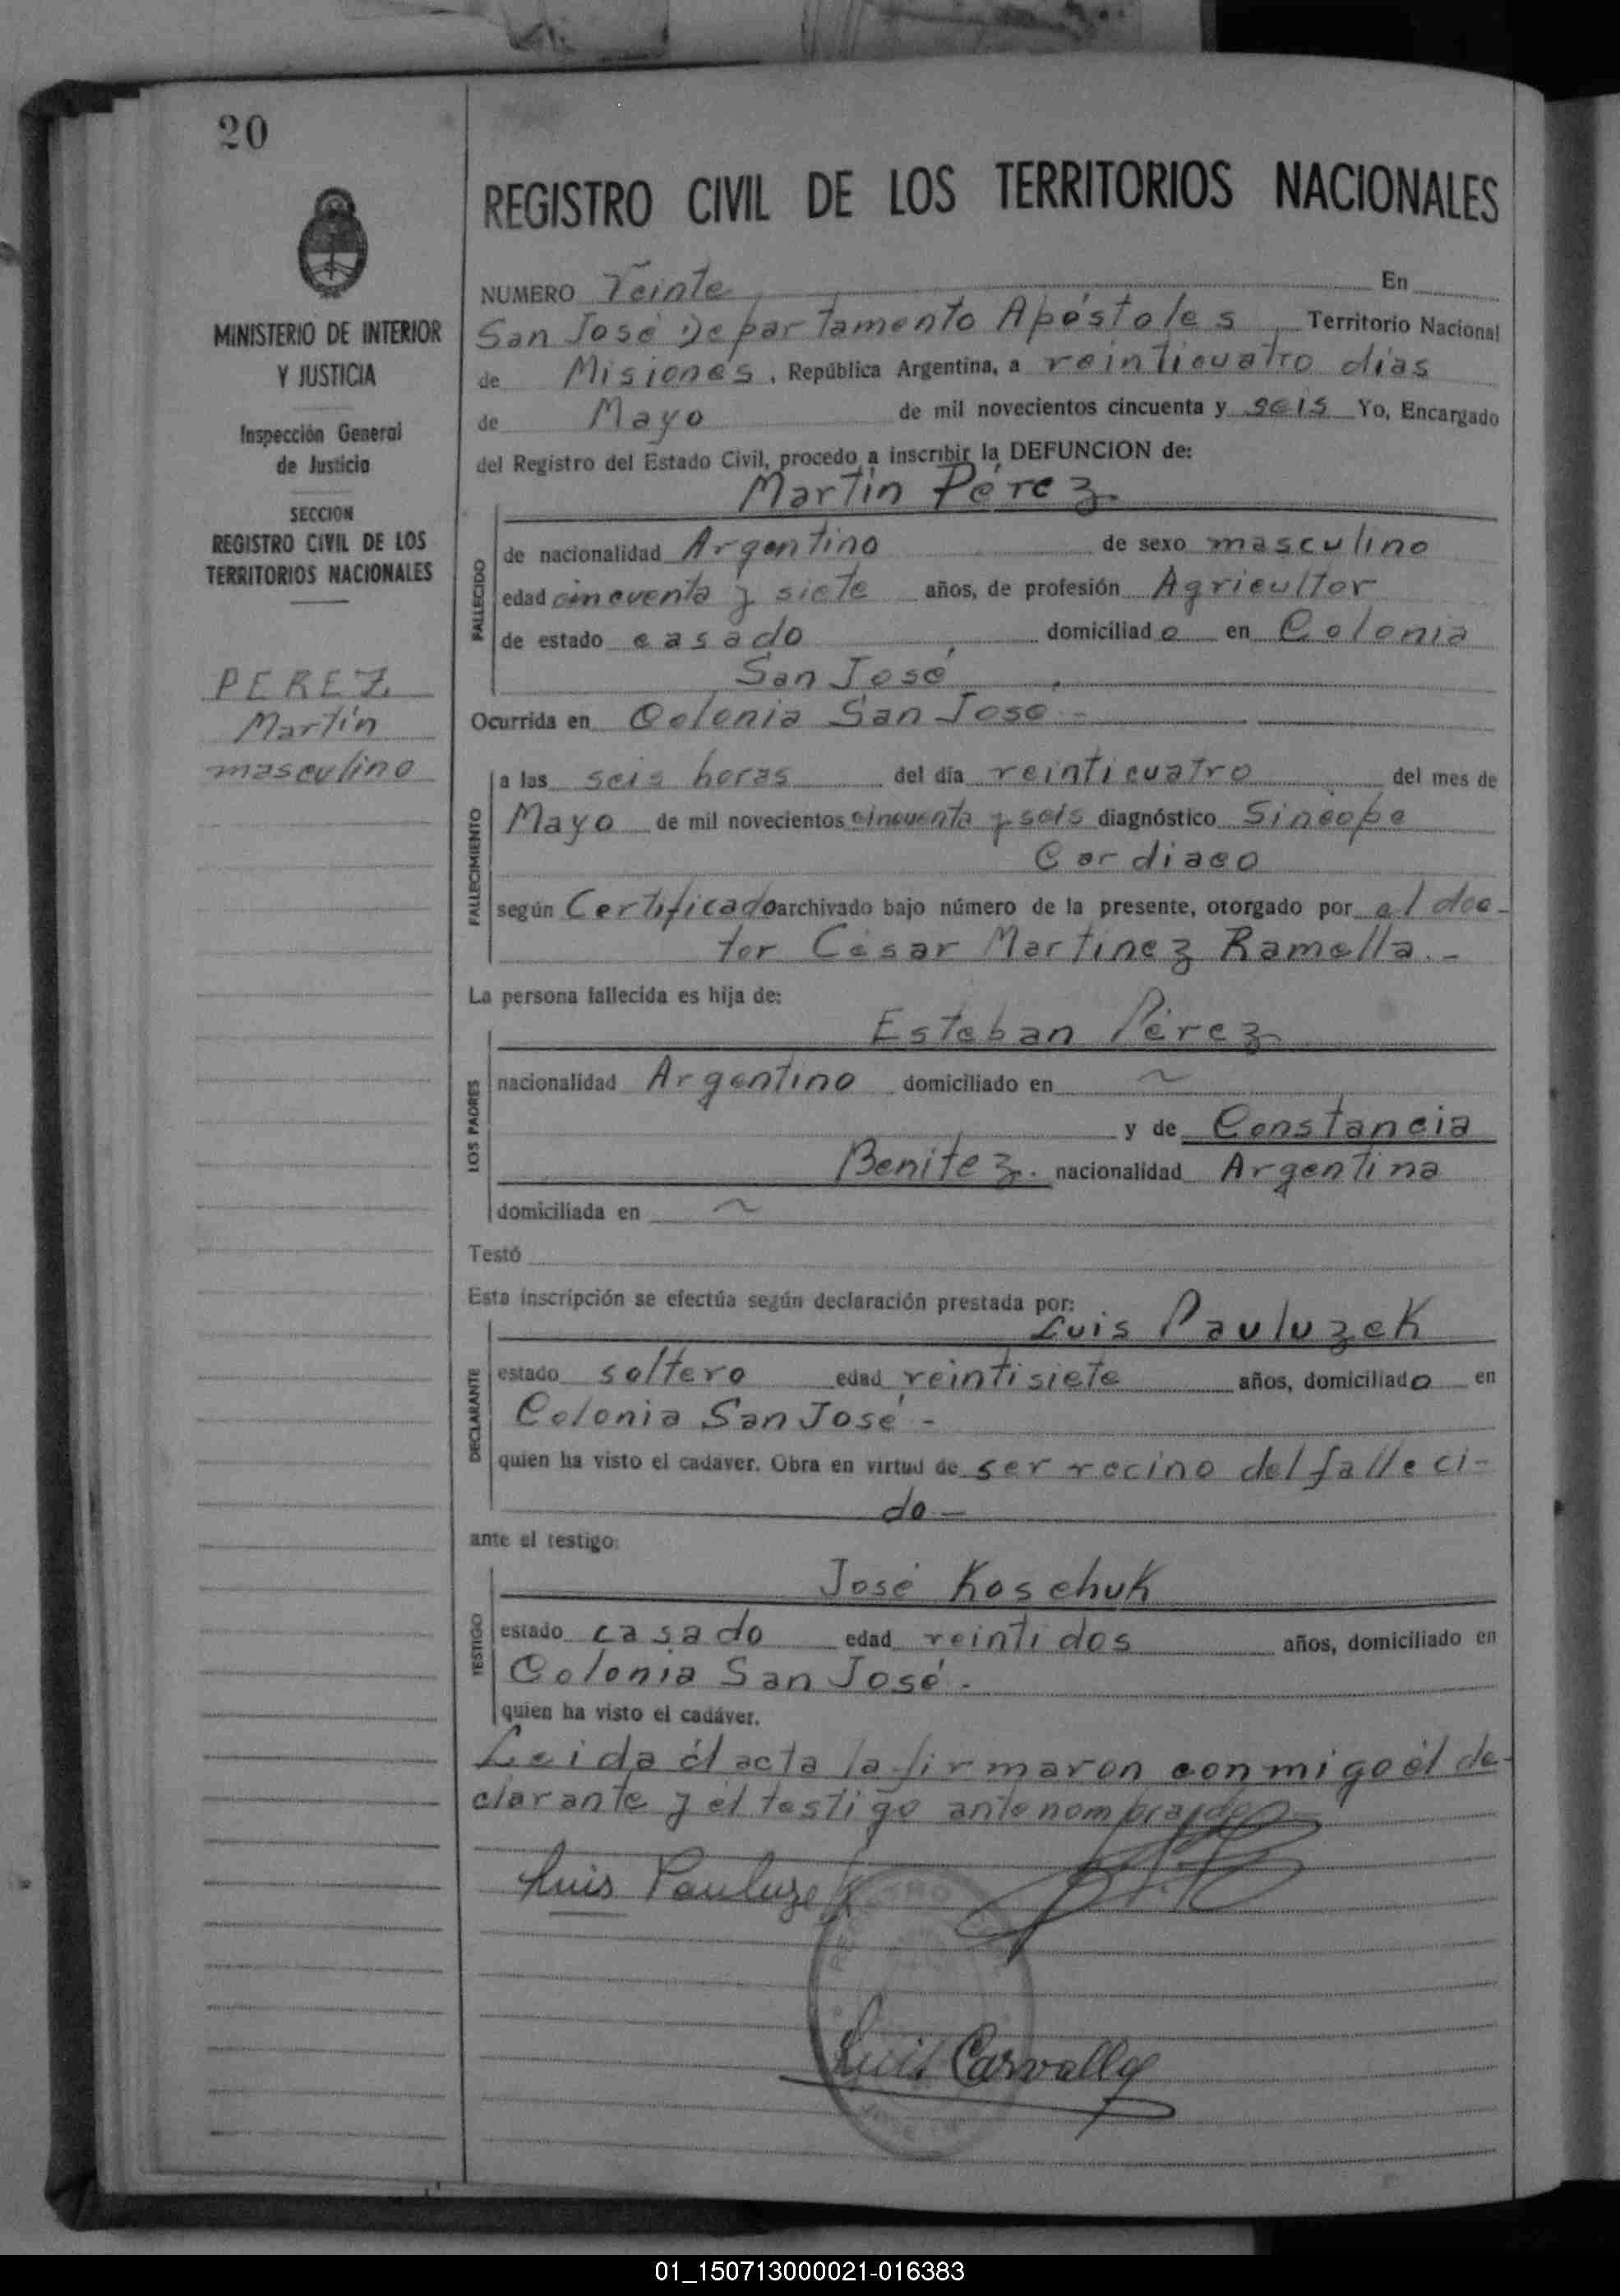 20
MINISTERIO DE INTERIOR
Y JUSTICIA
Inspección General
de Justicia
SECCION
REGISTRO CIVIL DE LOS
TERRITORIOS NACIONALES
PEREZ
Martín
masculino
REGISTRO CIVIL DE LOS TERRITORIOS NACIONALES
NUMERO Veinte En
San José Departamento Apóstoles Territorio Nacional
de Misiones, República Argentina, a veinticuatro días
de Mayo de mil novecientos cincuenta y seis Yo, Encargado
del Registro del Estado Civil, procedo a inscribir la DEFUNCION de:
Martín Pérez
FALLECIDO
de nacionalidad Argentino de sexo masculino
edad cincuenta y siete años, de profesión Agricultor
de estado casado domiciliado en Colonia
San José
Ocurrida en Colonia San José -
FALLECIMIENTO
a las seis horas del día veinticuatro del mes de
Mayo de mil novecientos cincuenta y seis diagnóstico Sincope
Cardiaco
según Certificado archivado bajo número de la presente, otorgado por el doc-
tor César Martínez Ramella.-
La persona fallecida es hija de:
Esteban Pérez
LOS PADRES
nacionalidad Argentino domiciliado en ~
y de Constancia
Benítez. nacionalidad Argentina
domiciliada en ~
Testó
Esta inscripción se efectúa según declaración prestada por:
Luis Pauluzek
DECLARANTE
estado soltero edad veintisiete años, domiciliado en
Colonia San José -
quien ha visto el cadáver. Obra en virtud de ser vecino del falleci-
do -
ante el testigo:
José Koschuk
TESTIGO
estado casado edad veintidos años, domiciliado en
Colonia San José.
quien ha visto el cadáver.
Leida él acta la firmaron conmigo él de-
clarante y él testigo antenombrado
Luis Pauluzek
Luis Carvallo
01_150713000021-016383